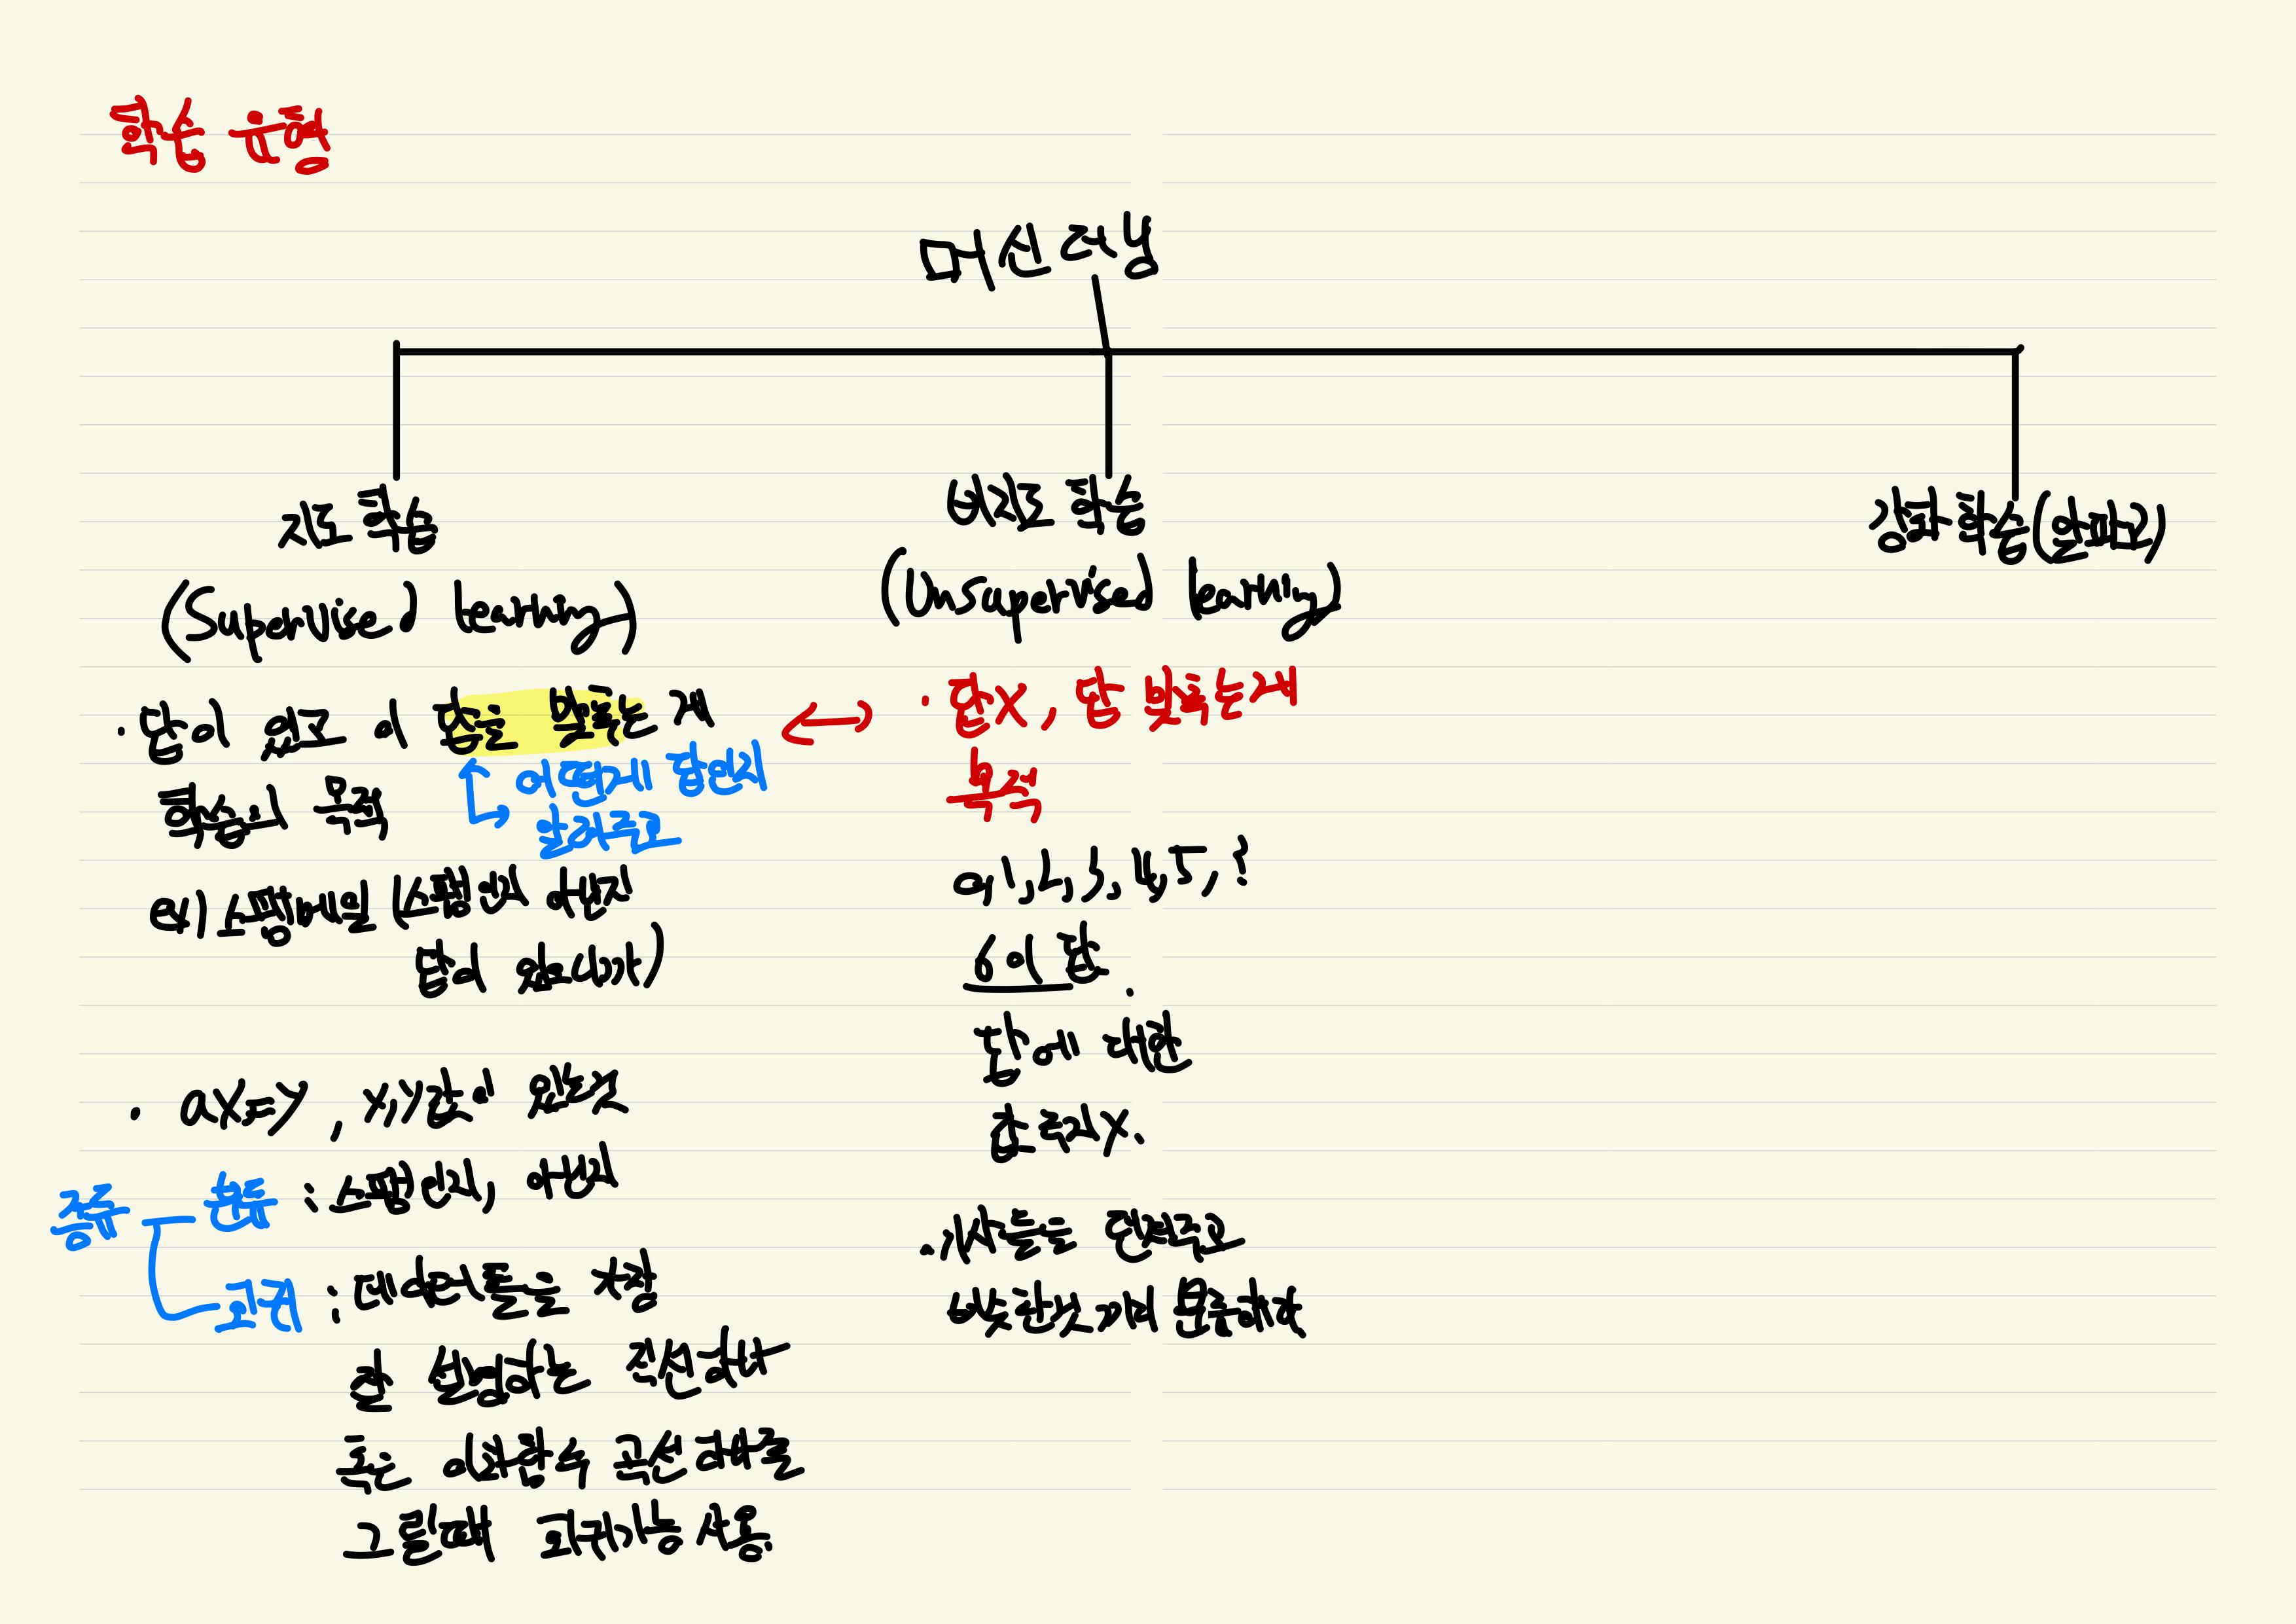 학습 유형
머신러닝
지도 학습
(Supervised learning)
· 답이 있고 이 답을 맞추는게
학습의 목적
어떤게 답인지
알려주고
ex) 스팸메일 (스팸인지 아닌지
답이 있으니까)
· ax=y , x,y값이 있는것
종류
분류 : 스팸인지, 아닌지
회귀 : 데이터들을 가장
잘 설명하는 직선하나
혹은 이차함수 곡선 하나를
그릴때 회귀가능 사용.
비지도 학습
(Unsupervised learning)
· 답X, 답 맞추는게
목적
0,1,2,3,4,5,?
6이 답.
답에 대한
X.
· 기사들을 던져주고
비슷한것 끼리 분류해라
강화 학습(알파고)